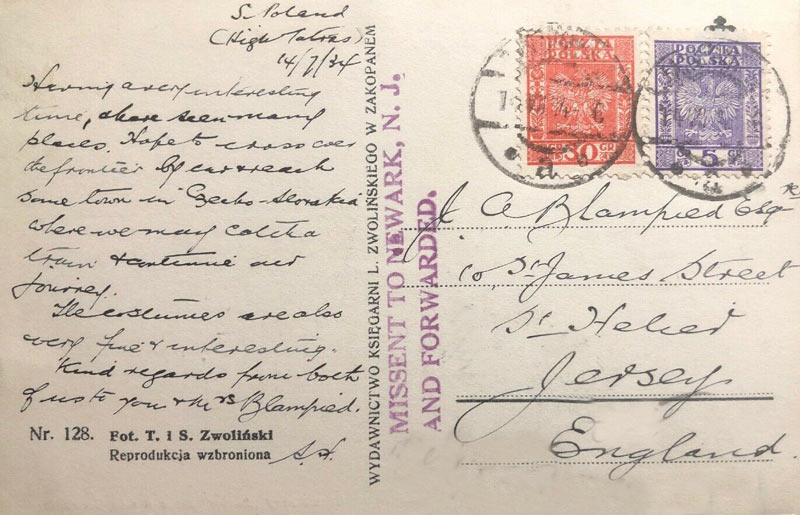 S. Poland
(High Tatras)
14/7/34
Having a very interesting
time, & have seen many
places. Hope to cross over
the frontier by car & reach
some town in Czecko-Slovakia
where we may catch a
train & continue our
journey.
The costumes are also
very fine & interesting.
Kind regards from both
of us to you & Mrs Blampied.
Nr. 128. Fot. T. i S. Zwoliński
Reprodukcja wzbroniona
WYDAWNICTWO KSIĘGARNI L. ZWOLIŃSKIEGO W ZAKOPANEM
MISSENT TO NEWARK, N. J.
AND FORWARDED.
POCZTA
POLSKA
30 GR
POCZTA
POLSKA
5 GR
a
a
J. A. Blampied Esqre
10, St James Street
St Helier
Jersey
England